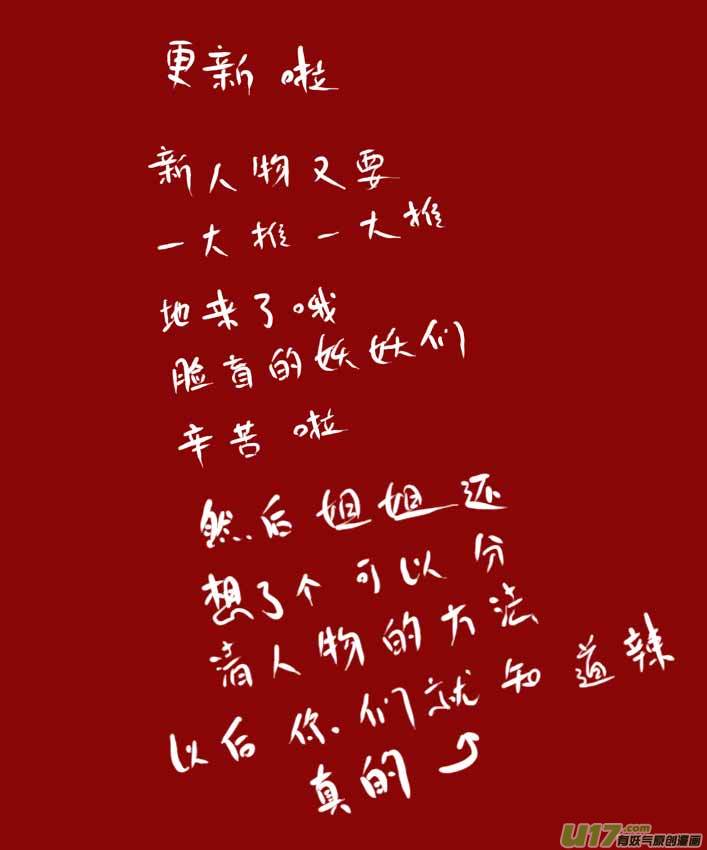 更新啦
新人物又要
一大推一大推
地来了哦
脸盲的妖妖们
辛苦啦
然后姐姐还
想了个可以分
清人物的方法
以后你们就知道辣
真的
U17.com
有妖气原创漫画